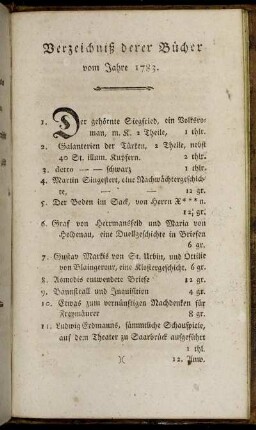 Verzeichniß derer Bücher
vom Jahre 1783.
1. Der gehörnte Siegfried, ein Volksro-
man, m. K. 2 Theile, 1 thlr.
2. Galanterien der Türken, 2 Theile, nebst
40 St. illum. Kupfern. 2 thlr.
3. detto — — schwarz 1 thlr.
4. Martin Singestert, eine Nachtwächtergeschich-
te, — — 12 gr.
5. Der Boden im Sack, von Herrn X***n.
12 gr.
6. Graf von Herrmansfeld und Maria von
Hohenau, eine Duellgeschichte in Briefen
6 gr.
7. Gustav Markis von St. Urbin, und Ottilie
von Blaingenur, eine Klostergeschichte. 6 gr.
8. Asmodis entwendete Briefe 12 gr.
9. Bannstrall und Inquisition 4 gr.
10. Etwas zum vernünftigen Nachdenken für
Freymäurer 8 gr.
11. Ludwig Erdmanns, sämmtliche Schauspiele,
auf dem Theater zu Saarbrück aufgeführt
1 thl.
)( 12. Anw.